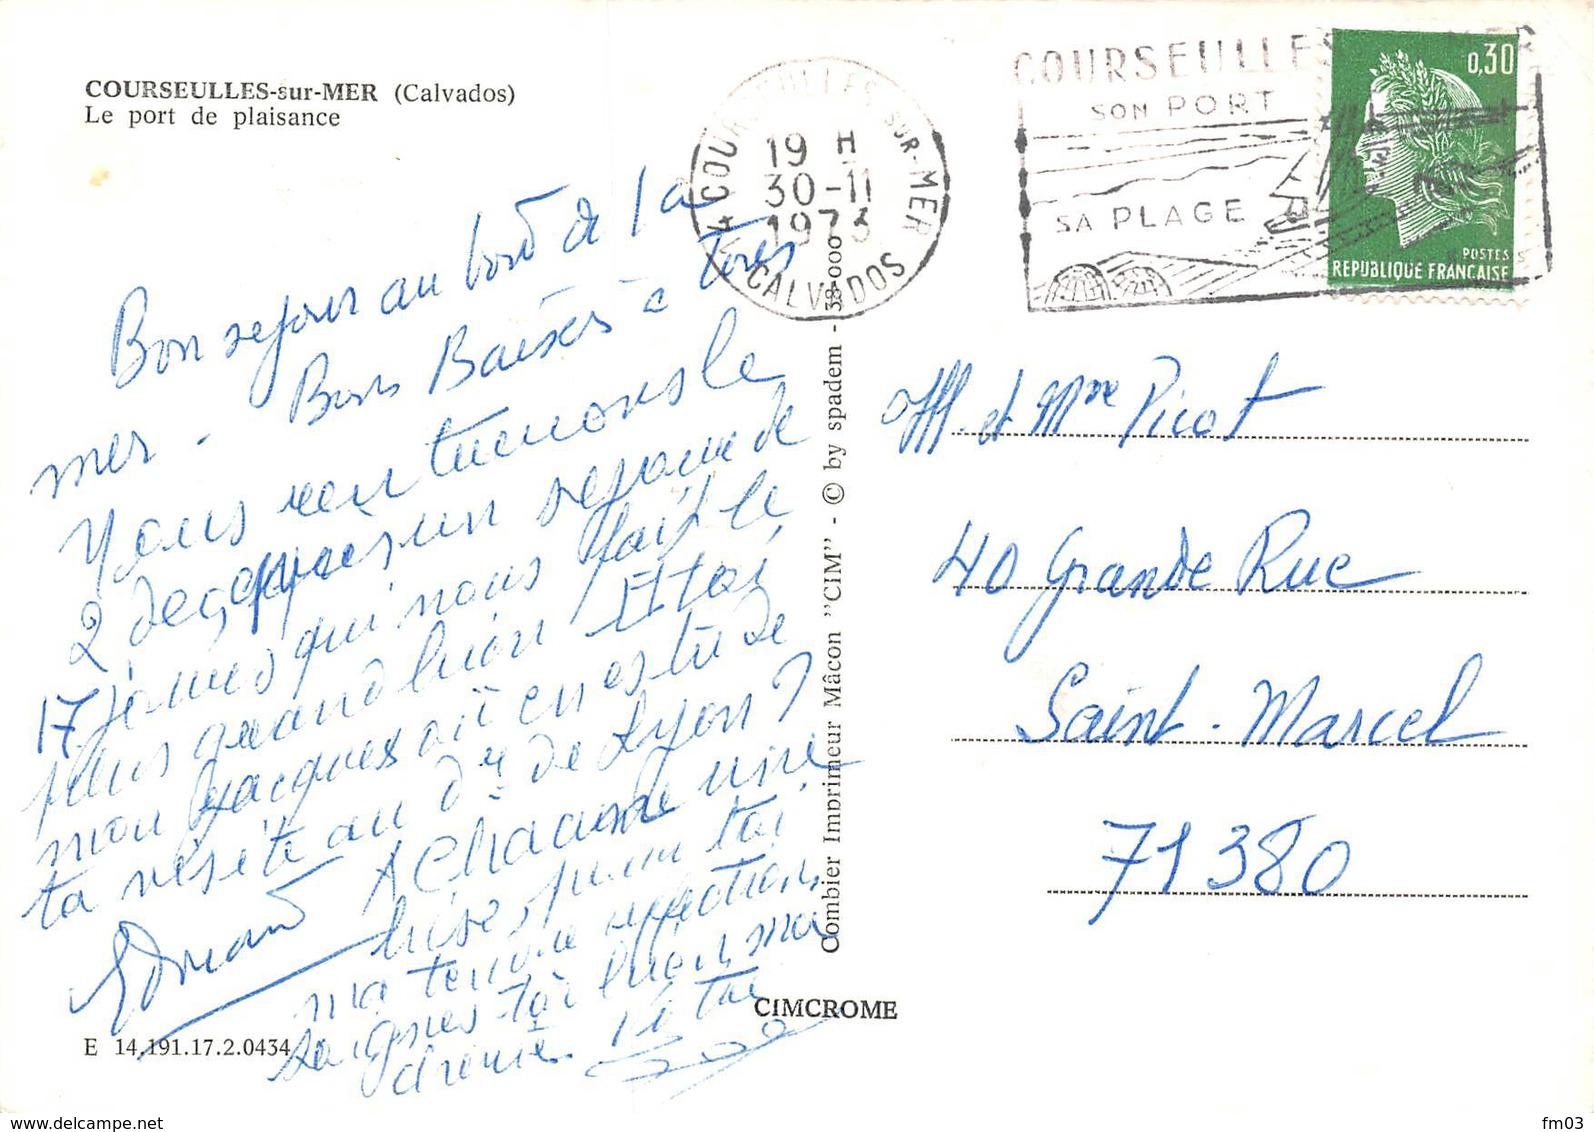 COURSEULLES-sur-MER (Calvados)
Le port de plaisance
COURSEULLES-SUR-MER
19 H
30-11
1973
14 CALVADOS
COURSEULLES MER
SON PORT
SA PLAGE
0,30
POSTES
REPUBLIQUE FRANÇAISE
Bon sejour au bord de la
mer. Bons Baisers à tous
Nous rentrerons le
2 dec, apres un sejour de
17 jours qui nous plait le
plus grand bien Et toi
mon Jacques où en es tu de
ta visite au de Lyon ?
A chacun une
bise, pour toi
ma tendre affection
soignes-toi bien, ma
cherie
Offf. et Mme Picot
40 Grande Rue
Saint-Marcel
71380
Combier Imprimeur Mâcon "CIM" - © by spadem - 38-000
CIMCROME
E 14.191.17.2.0434
fm03